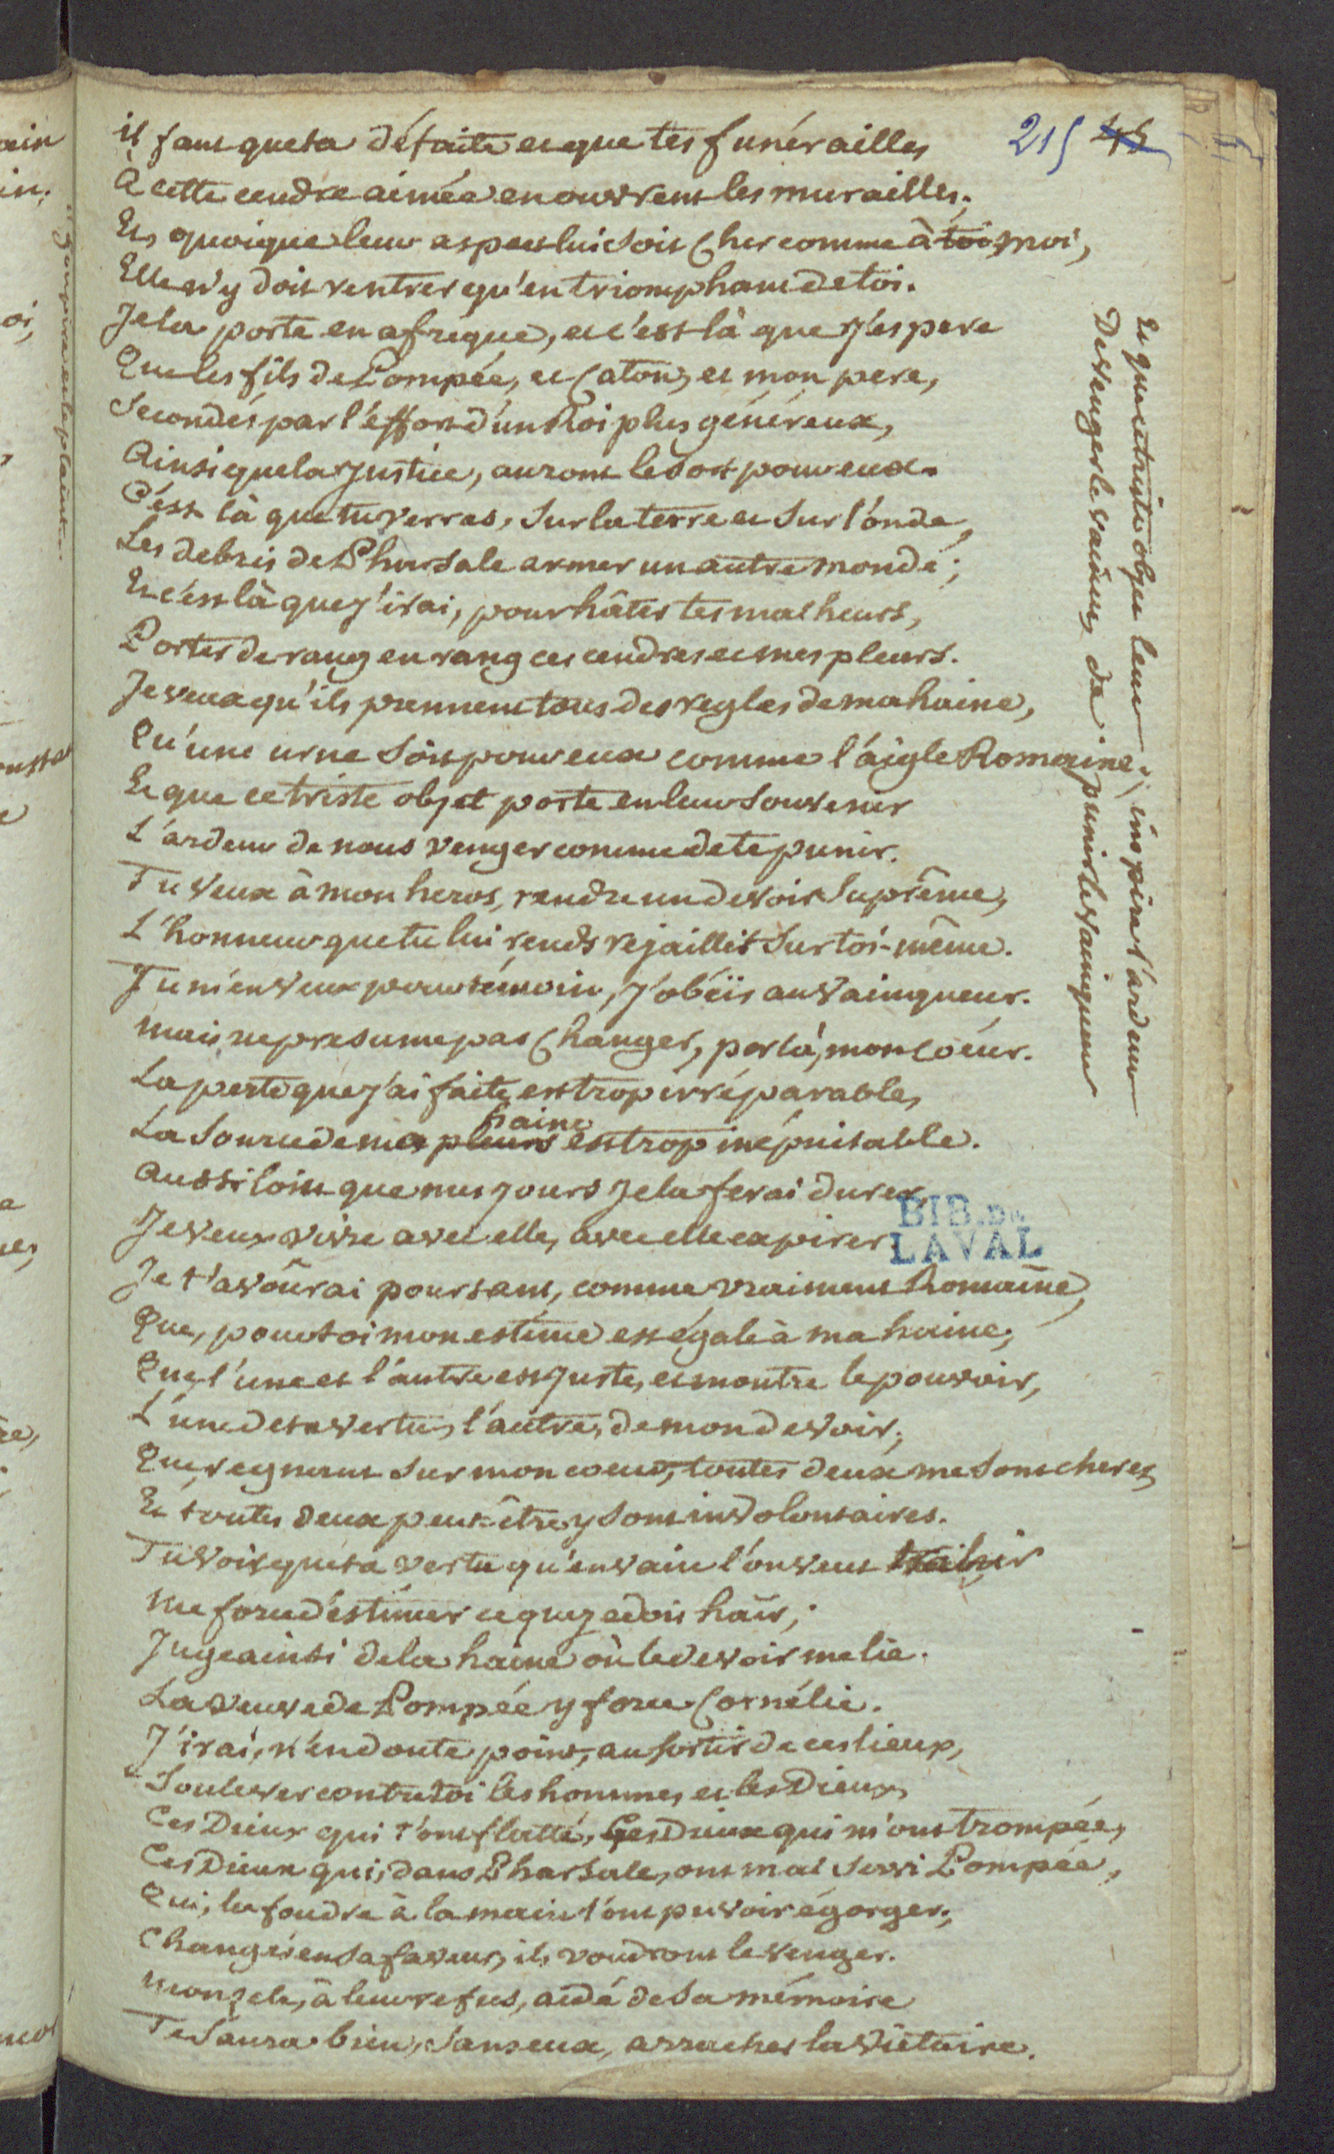 215 45
il faut que ta défaite et que tes funérailles
à cette cendre aimée en ouvrent les murailles;
Et, quoique leur aspect lui soit Cher comme à toi, moi,
Elle n'y doit rentrer qu'en triomphant de toi.
Je la porte en afrique, et c'est là que j'espere
Que les fils de Pompée, et Caton, et mon pere,
Secondés par l'éffort d'un Roi plus généreux,
Ainsi que la justice, auront le sort pour eux.
C'est là que tu verras, sur la terre et sur l'onde,
Les debris de Pharsale armer un autre monde;
Et c'est là que j'irai, pour hâter tes malheurs,
Porter de rang en rang ces cendres et mes pleurs.
Je veux qu'ils prennent tous des regles de ma haine,
Qu'une urne soit pour eux comme l'aigle Romaine;
Et que ce triste objet porte en leur souvenir
L'ardeur de nous venger comme de te punir.
Tu veux à mon heros, rendre un devoir suprême,
L'honneur que tu lui rends rejaillit sur toi-même.
Tu m'en veux pour témoin, j'obéïs au vainqueur.
mais ne presume pas Changer, par là, mon coeur.
La perte que j'ai faite, est trop irréparable,
haine
La source de ma pleurs est trop inépuisable.
Aussi loin que mes jours je la ferai durer,
Je veux vivre avec elle, avec elle expirer.
BIB. DE
LAVAL
Je t'avoûrai pourtant, comme vraiment Romaine,
Que, pour toi mon estime est égale à ma haine;
Que l'une et l'autre est juste, et montre le pouvoir,
L'une de ta vertu, l'autre, de mon devoir;
Que, regnant sur mon coeur, toutes deux me sont cheres,
Et toutes deux peut-être y sont involontaires.
Tu vois que ta vertu qu'envain l'on veut trahir
me force d'estimer ce que je dois haïr;
Juge ainsi de la haine où le devoir me lie.
La veuve de Pompée y force Cornélie.
J'irai, n'en doute point, au sortir de ces lieux,
Soulever contre toi les hommes, et les Dieux,
Ces Dieux qui t'ont flatté, Ces Dieux qui m'ont trompée,
Ces Dieux qui, dans Pharsale, ont mal servi Pompée,
Qui, la foudre à la main l'ont pu voir égorger;
Changés en sa faveur, ils voudront le venger.
mon zele, à leur refus, aidé de sa mémoire
Te saura bien, sans eux, arracher la victoire.
Et que ce triste objet leur inspire l'ardeur
De venger le vaincu, de punir le vainqueur